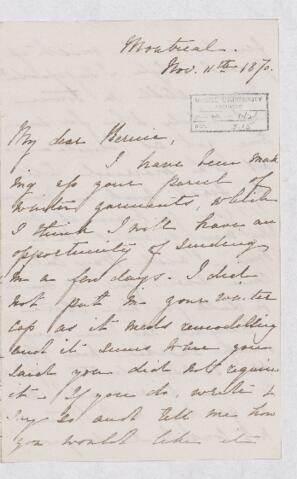 Montreal.
Nov. 11th 1870.
McGILL UNIVERSITY
ARCHIVES
My dear Bernie,
I have been mak
ing up your parcel of
winter garments, which
I think I will have an
opportunity of sending
in a few days. I did
not put in your winter
cap as it needs remodelling
and it seems to me you
said you did not require
it - If you do, write &
say so and tell me how
you would like it